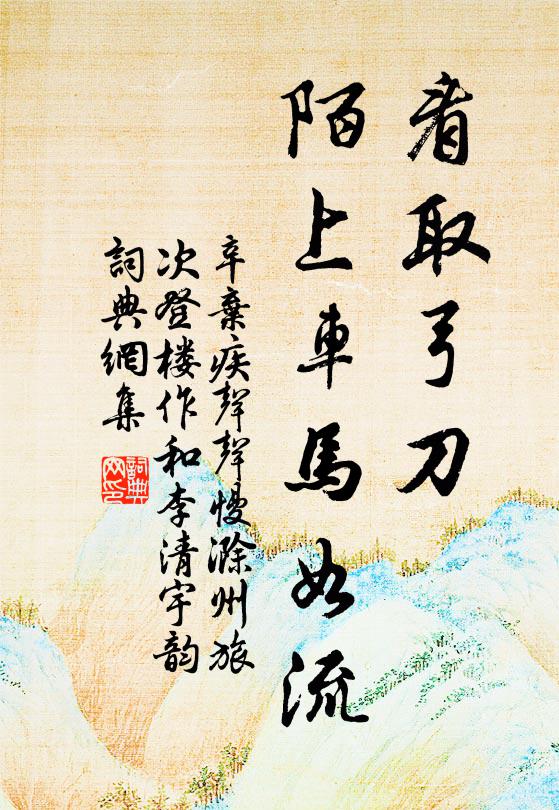 看取弓刀
陌上車馬如流
辛棄疾聲聲慢滁州旅
次登楼作和李清宇韵
詞典網集
詞典
网印